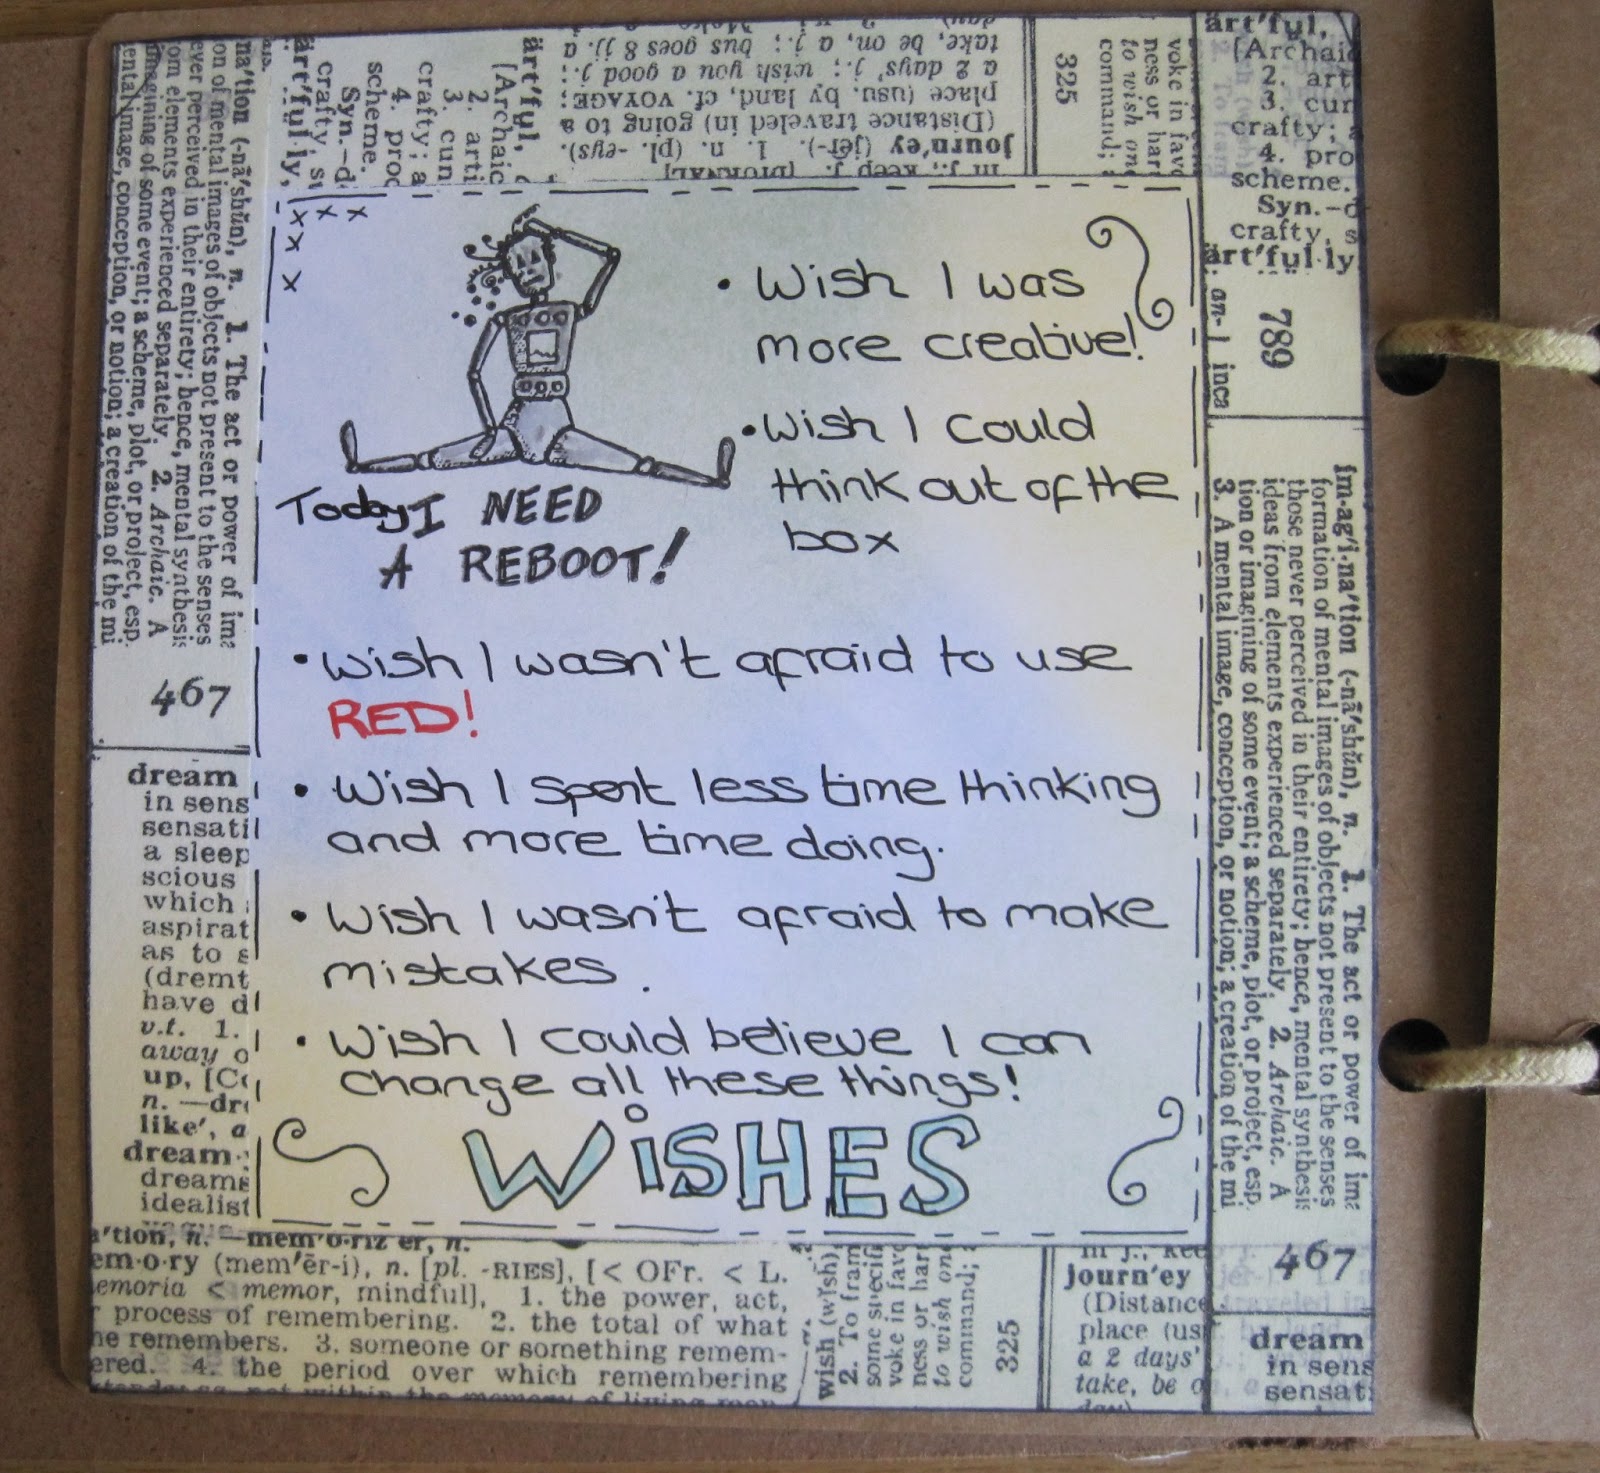 • Wish I was
more creative!
• Wish I could
think out of the
box
Today I NEED
A REBOOT!
• Wish I wasn't afraid to use
RED!
• Wish I spent less time thinking
and more time doing.
• Wish I wasn't afraid to make
mistakes.
• Wish I could believe I can
change all these things!
WiSHES
na'tion (-nā'shŭn), n. 1. The act or power of ima
on of mental images of objects not present to the senses
ever perceived in their entirety; hence, mental synthesis
om elements experienced separately. 2. Archaic. A
imagining of some event; a scheme, plot, or project, esp.
ental image, conception, or notion; a creation of the mi
467
dream
in sens
sensati
a sleep
scious
which
aspirat
as to s
(dremt
have d
v.t. 1.
away o
up, [Co
n. —dr
like', a
dream
dreams
idealist
art'ful,
[Archaic
2. arti
3. cun
crafty; a
4. proc
scheme.
Syn.—d
crafty, s
art'ful·ly,
in j., keep j. [DIURNAL]
journ'ey (jĕr-). 1. n. (pl. -eys).
(Distance traveled in) going to a
place (usu. by land, cf. VOYAGE;
a 2 days' j.; wish you a good j.;
take, be on, a j.; bus goes 8 jj. a
day)
voke in favo
ness or harm
to wish one
command;
325
art'ful,
[Archaic
2. art
3. cur
crafty;
4. pro
scheme.
Syn.—
crafty, s
art'ful·ly
789
im·ag'i·na'tion (-nā'shŭn), n. 1. The act or power of ima
formation of mental images of objects not present to the senses
those never perceived in their entirety; hence, mental synthesis
ideas from elements experienced separately. 2. Archaic. A
tion or imagining of some event; a scheme, plot, or project, esp.
3. A mental image, conception, or notion; a creation of the mi
467
a'tion, n. —mem'o·riz'er, n.
em·o·ry (mem'ēr-i), n. [pl. -RIES], [< OFr. < L.
emoria < memor, mindful], 1. the power, act,
r process of remembering. 2. the total of what
he remembers. 3. someone or something remem-
ered. 4. the period over which remembering
wish (wĭsh)
2. To fram
some specifi
voke in favo
ness or harm
to wish one
command;
325
journ'ey
(Distance
place (us
a 2 days'
take, be o
day)
dream
in sens
sensat